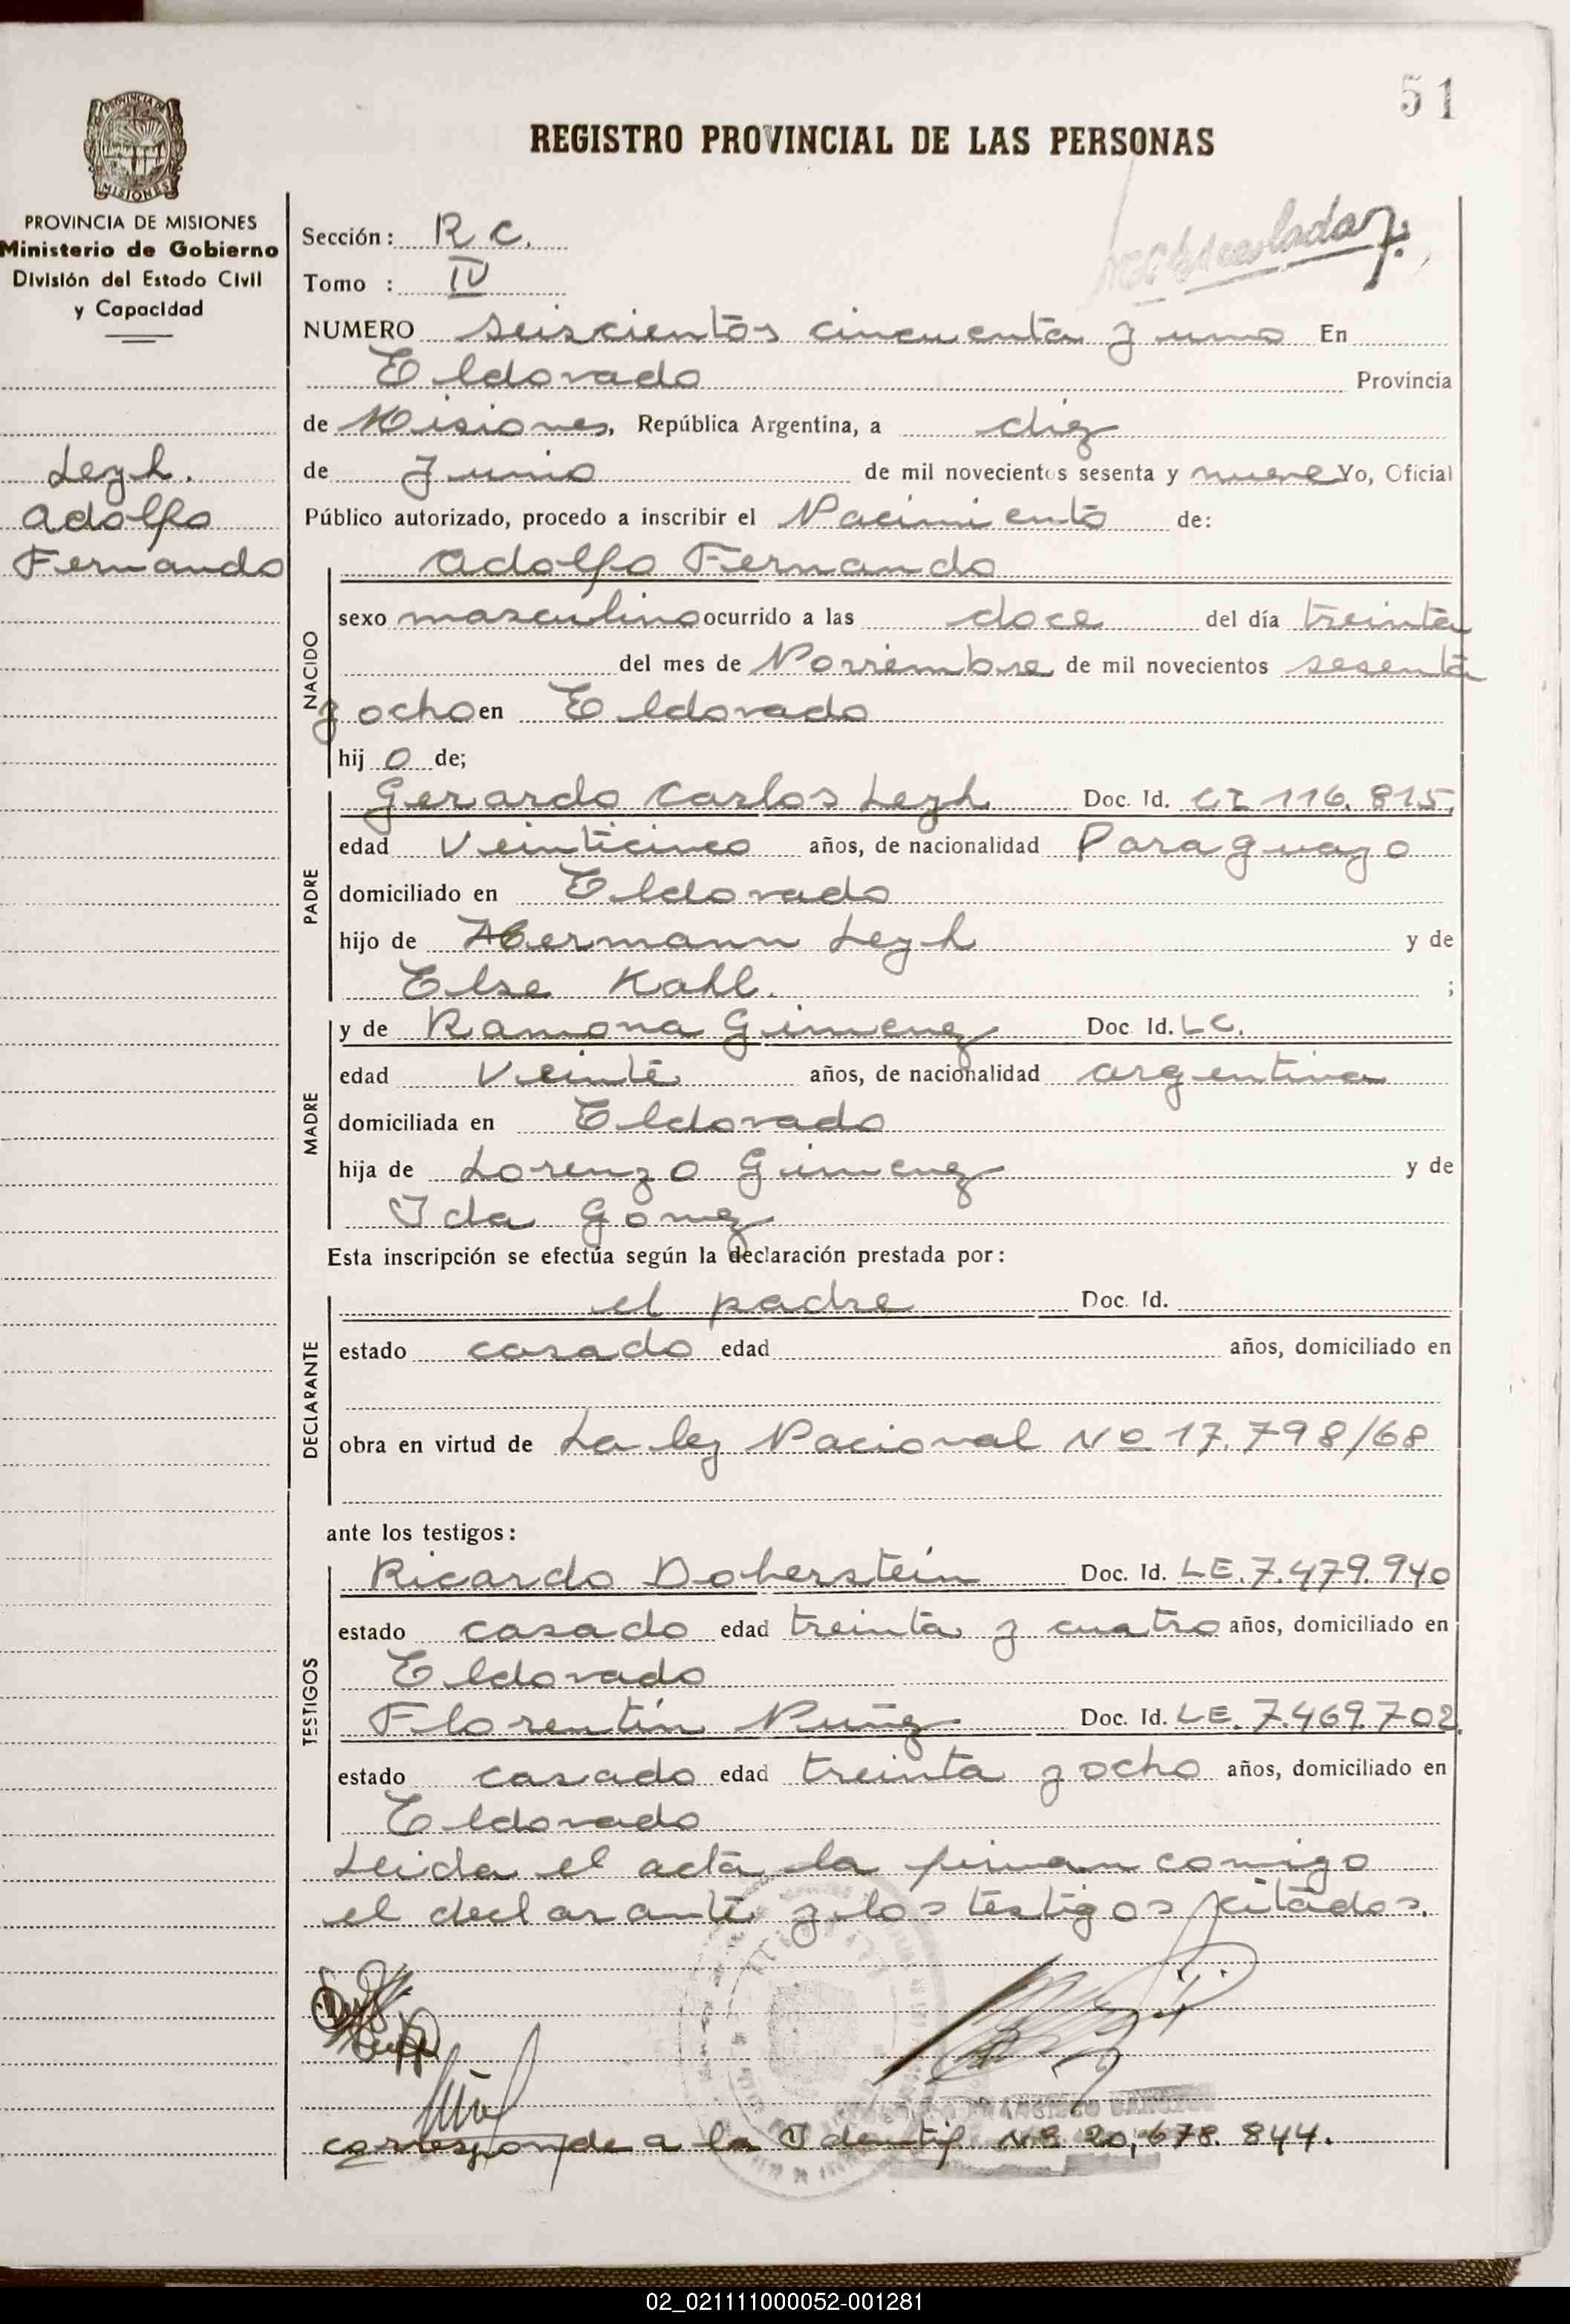 51
REGISTRO PROVINCIAL DE LAS PERSONAS
PROVINCIA DE
MISIONES
PROVINCIA DE MISIONES
Ministerio de Gobierno
División del Estado Civil
y Capacidad
Leyh.
Adolfo
Fernando
Sección: R C.
Tomo : IV
NUMERO seiscientos cincuenta y uno En
Eldorado Provincia
de Misiones, República Argentina, a diez
de Junio de mil novecientos sesenta y nueve Yo, Oficial
Público autorizado, procedo a inscribir el Nacimiento de:
NACIDO
Adolfo Fernando
sexo masculino ocurrido a las doce del día treinta
del mes de Noviembre de mil novecientos sesenta
y ocho en Eldorado
hij o de;
PADRE
Gerardo Carlos Leyh Doc. Id. CI 116.815,
edad Veinticinco años, de nacionalidad Paraguayo
domiciliado en Eldorado
hijo de Hermann Leyh y de
Else Kahl. ;
MADRE
y de Ramona Gimenez Doc. Id. LC.
edad Veinte años, de nacionalidad argentina
domiciliada en Eldorado
hija de Lorenzo Gimenez y de
Ida Gómez
Esta inscripción se efectúa según la declaración prestada por:
DECLARANTE
el padre Doc. Id.
estado casado edad años, domiciliado en
obra en virtud de La ley Nacional Nº 17.798/68
ante los testigos:
TESTIGOS
Ricardo Doherstein Doc. Id. LE. 7.479.940
estado casado edad treinta y cuatro años, domiciliado en
Eldorado
Florentín Nuñez Doc. Id. LE. 7.469.702.
estado casado edad treinta y ocho años, domiciliado en
Eldorado
Leida el acta la firman comigo
el declarante y los testigos citados.
corresponde a la Identif. Nº 20,678.844.
02_021111000052-001281